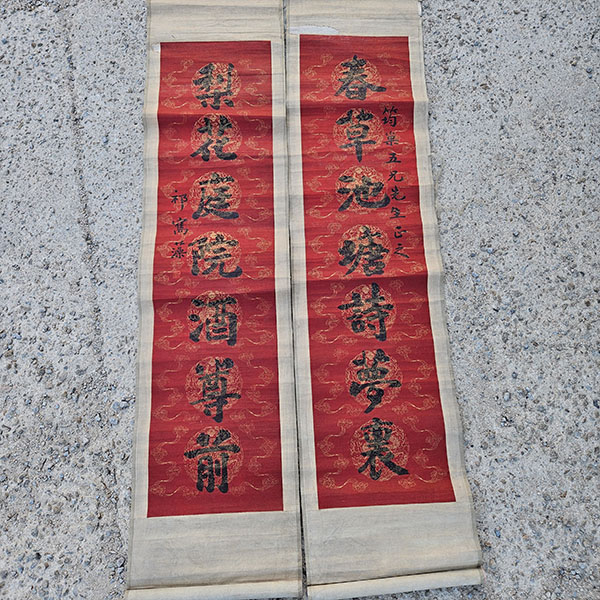 春草池塘詩夢裏
筠巢五兄先生正之
梨花庭院酒尊前
祁寯藻